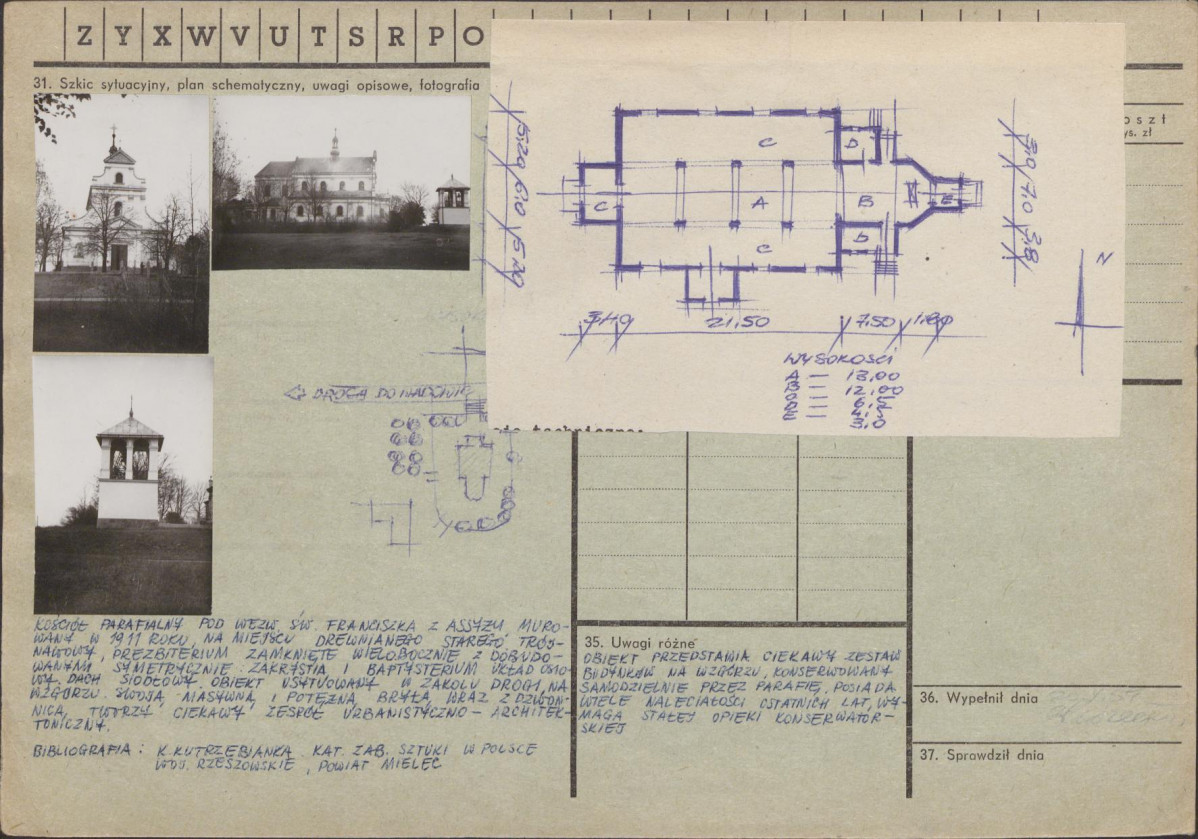 Z Y X W V U T S R P O
31. Szkic sytuacyjny, plan schematyczny, uwagi opisowe, fotografia
oszt
ys. zł
5.20 6.0 5.20
C
D
C
A
B
E
D
C
3.8 7.0 3.8
N
3.40 21,50 7.50 1.80
WYSOKOŚCI
A — 13,00
B — 12,00
C — 6,5
D — 4,5
E — 3,0
DROGA DO
techniczne:
KOŚCIÓŁ PARAFIALNY POD WEZW. ŚW. FRANCISZKA Z ASSYŻU MURO-
WANY W 1911 ROKU, NA MIEJSCU DREWNIANEGO STAREGO TRÓJ-
NAWOWY, PREZBITERIUM ZAMKNIĘTE WIELOBOCZNIE Z DOBUDO-
WANYMI SYMETRYCZNIE ZAKRYSTIĄ I BAPTYSTERIUM UKŁAD OSIO-
WY, DACH SIODŁOWY OBIEKT USYTUOWANY W ZAKOLU DROGI, NA
WZGÓRZU. SWOJĄ MASYWNĄ I POTĘŻNĄ BRYŁĄ, WRAZ Z DZWON-
NICĄ, TWORZY CIEKAWY ZESPÓŁ URBANISTYCZNO – ARCHITEK-
TONICZNY.
BIBLIOGRAFIA : K. KUTRZEBIANKA KAT. ZAB. SZTUKI W POLSCE
WOJ. RZESZOWSKIE, POWIAT MIELEC
35. Uwagi różne
OBIEKT PRZEDSTAWIA CIEKAWY ZESTAW
BUDYNKÓW NA WZGÓRZU, KONSERWOWANY
SAMODZIELNIE PRZEZ PARAFIĘ, POSIADA
WIELE NALECIAŁOŚCI OSTATNICH LAT, WY-
MAGA STAŁEJ OPIEKI KONSERWATOR-
SKIEJ
36. Wypełnił dnia
37. Sprawdził dnia